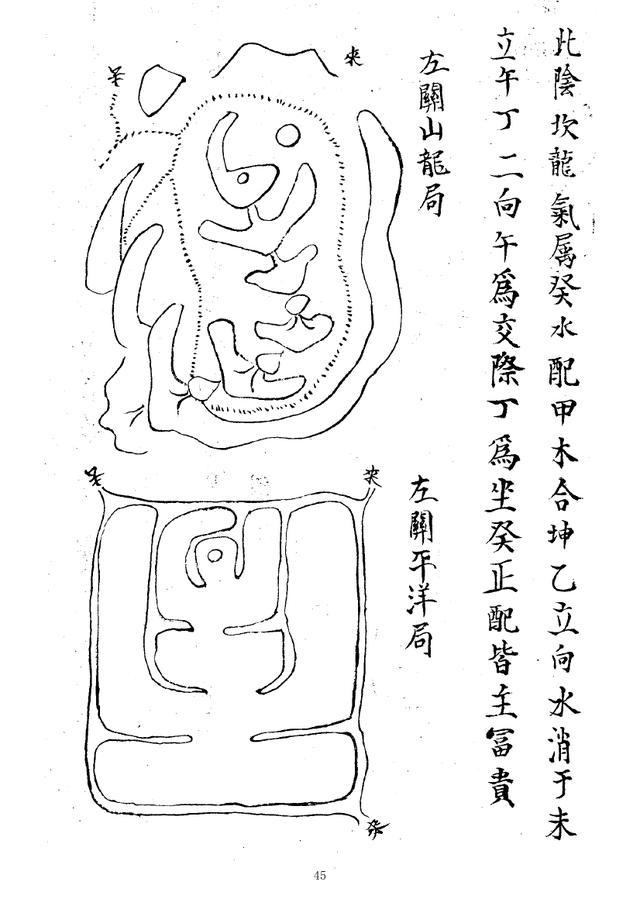 此陰坎龍氣属癸水配甲木合坤乙立向水消于未
立午丁二向午爲交際丁爲坐癸正配皆主冨貴
左關山龍局
左關平洋局
45